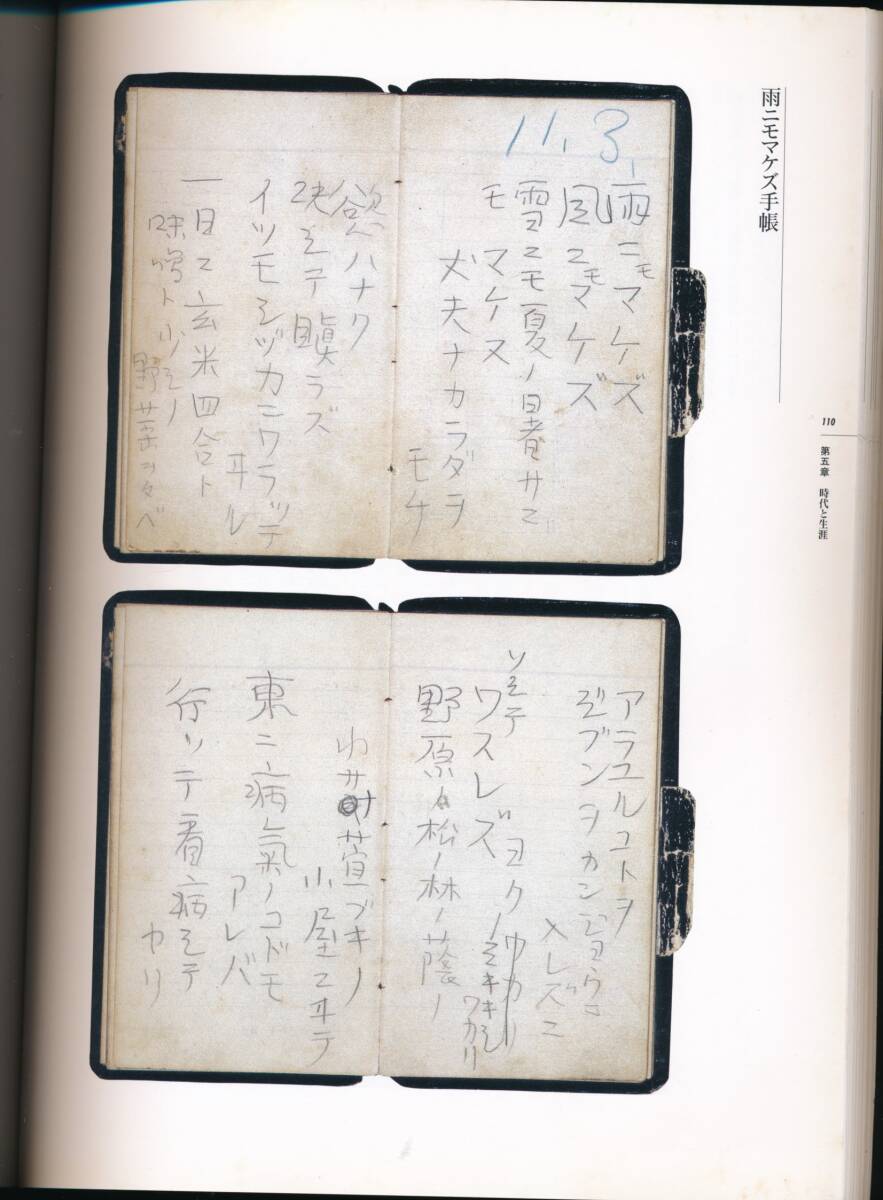 雨ニモマケズ手帳
110
第五章 時代と生涯
11.3.
雨ニモマケズ
風ニモマケズ
雪ニモ夏ノ暑サニ
モ マケヌ
丈夫ナカラダヲ
モチ
慾ハナク
決シテ瞋ラズ
イツモシヅカニワラッテ
ヰル
一日ニ玄米四合ト
味噌ト少シノ
野菜ヲタベ
アラユルコトヲ
ジブンヲカンジョウニ
入レズニ
ヨク
ミキキシ
ワカリ
ソシテ
ワスレズ
野原ノ松ノ林ノ蔭ノ
小サナ萱ブキノ
小屋ニヰテ
東ニ病氣ノコドモ
アレバ
行ッテ看病シテ
ヤリ